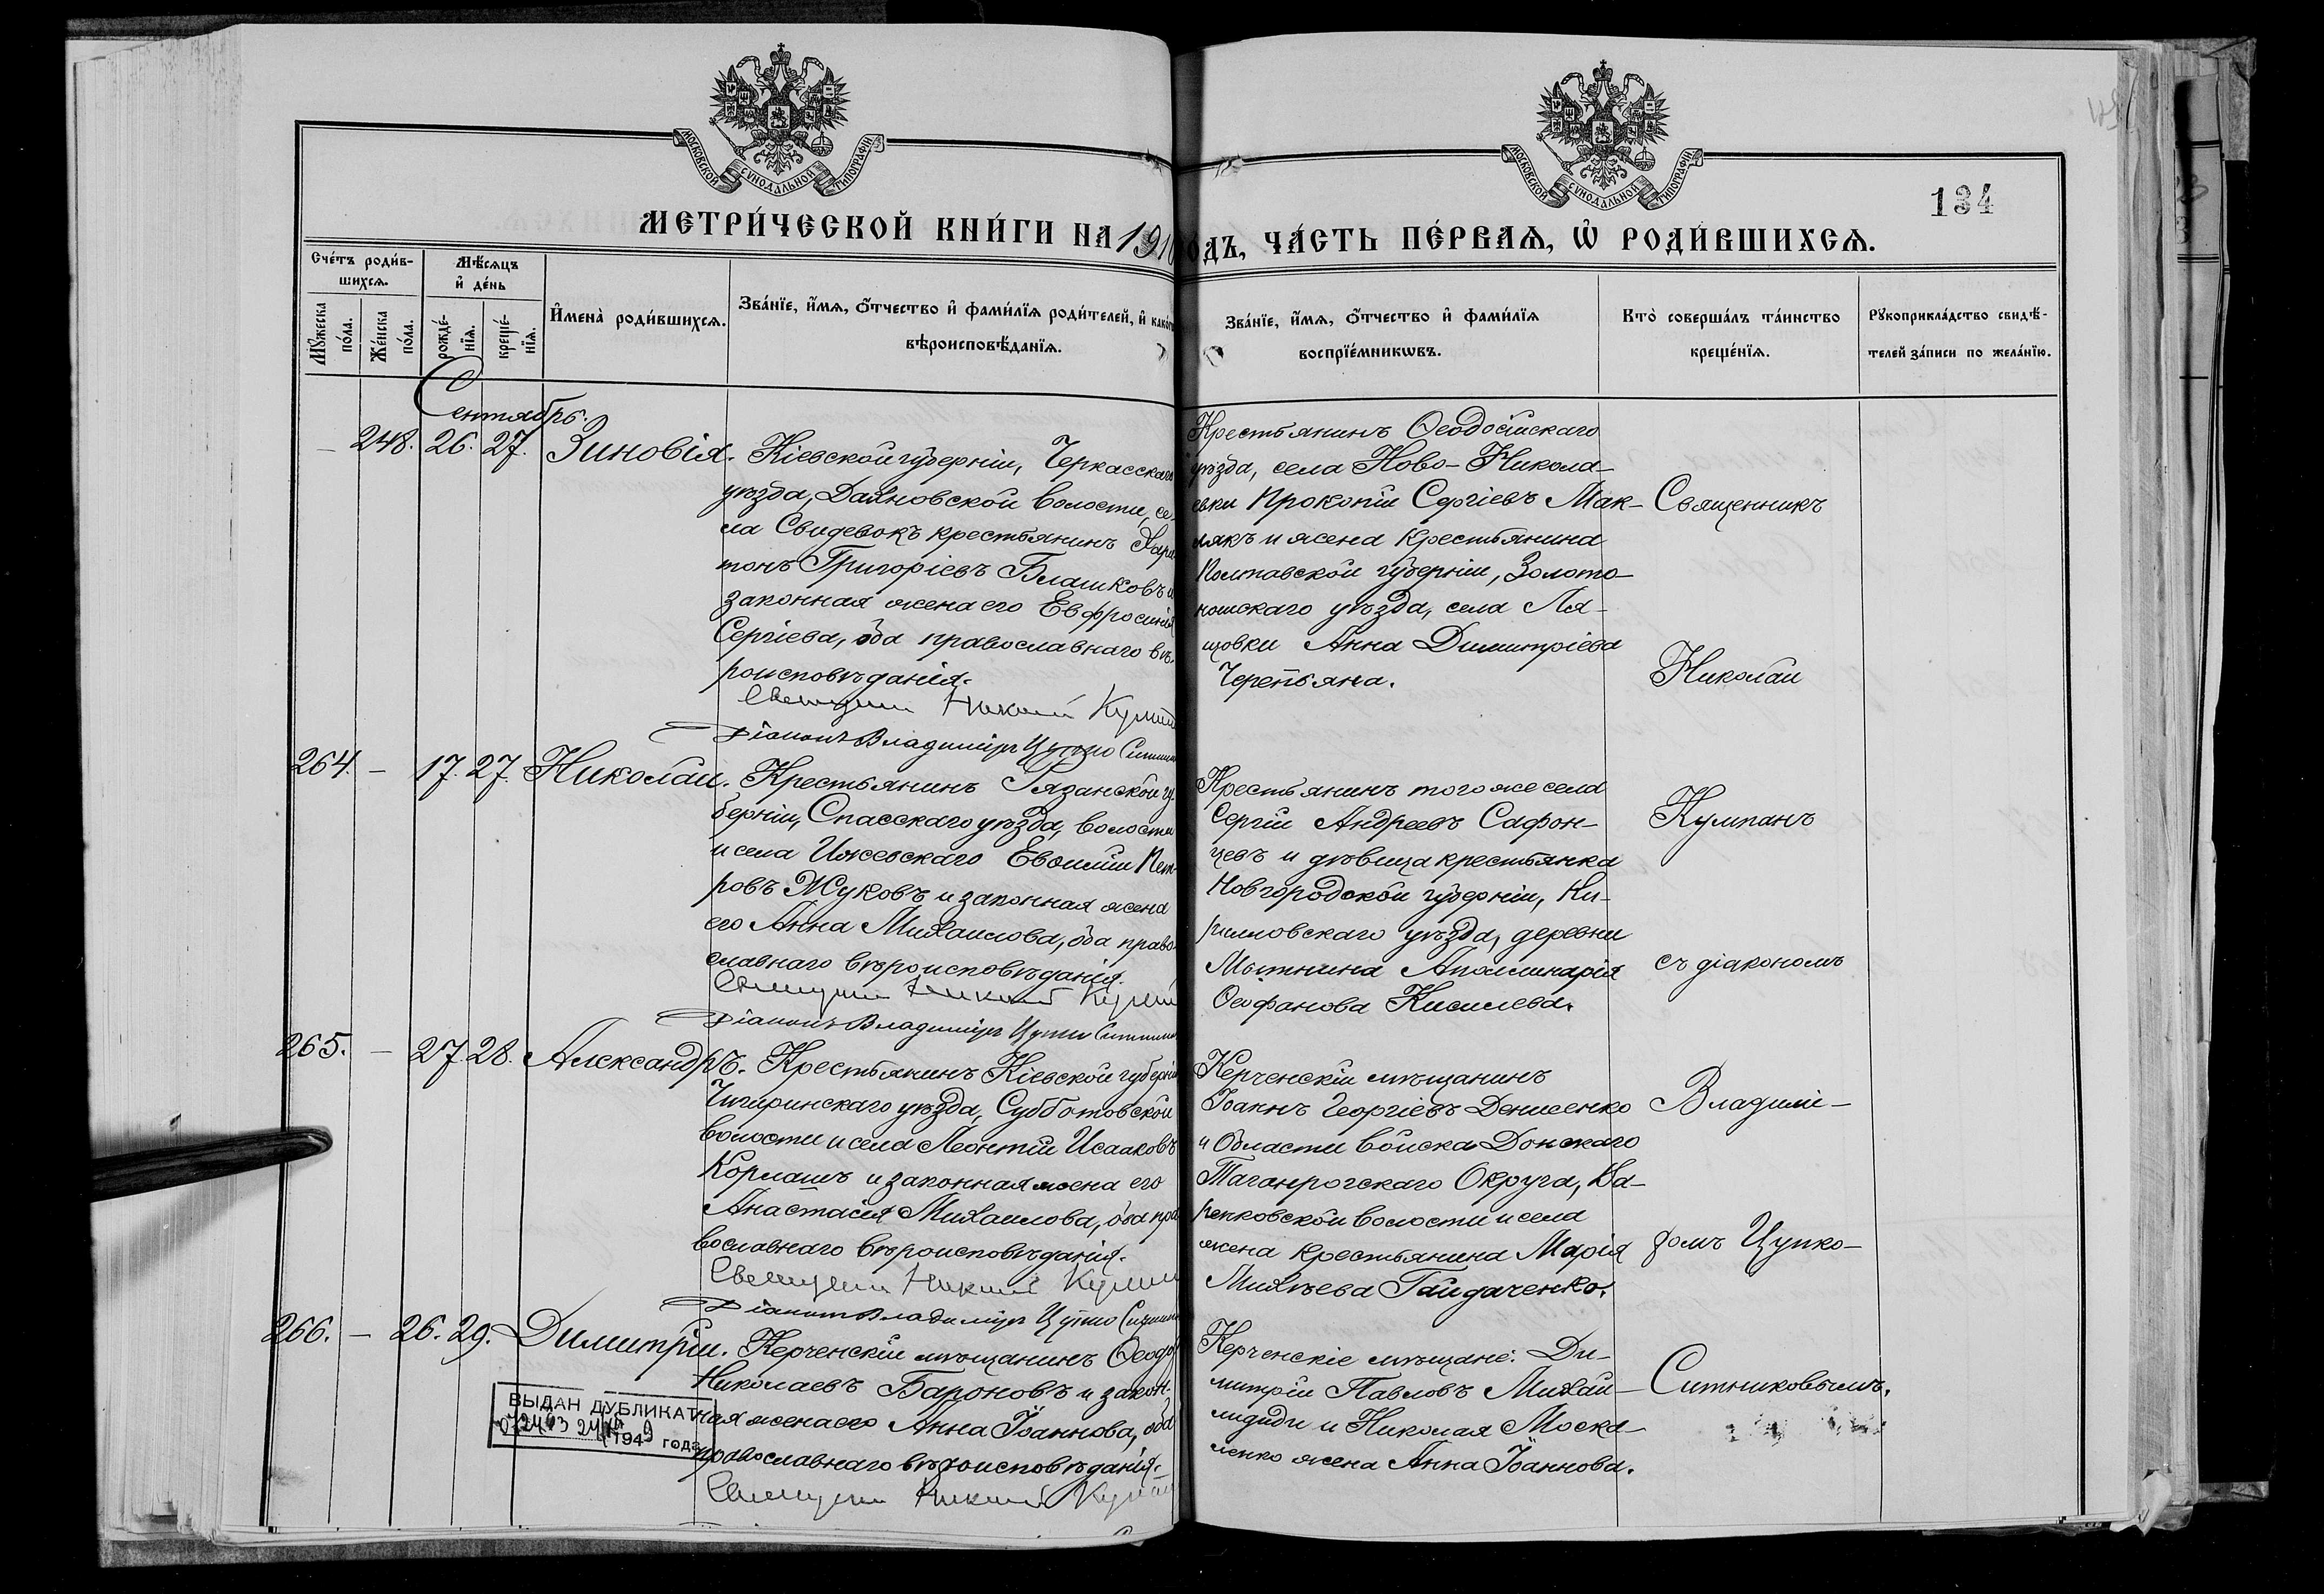 МОСКОВСКОЙ СѴНОДАЛЬНОЙ ТИПОГРАФІИ
МОСКОВСКОЙ СѴНОДАЛЬНОЙ ТИПОГРАФІИ
134
МЕТРИ́ЧЕСКОЙ КНИ́ГИ НА 1910
ОДЪ, ЧА́СТЬ ПЕ́РВАѦ, Ѡ҆ РОДИ́ВШИХСѦ.
Сче́тъ роди́в-
шихсѧ.
Мѣ́сѧцъ
и҆ де́нь
Мꙋ́жеска
по́ла.
Же́нска
по́ла.
рожде́-
нїѧ.
креще́-
нїѧ.
И҆мена̀ роди́вшихсѧ.
Зва́нїе, и҆́мѧ, ѻ҆́тчество и҆ фами́лїѧ роди́телей, и҆ како́гѡ
вѣроисповѣ́данїѧ.
Зва́нїе, и҆́мѧ, ѻ҆́тчество и҆ фами́лїѧ
воспрїе́мникѡвъ.
Кто̀ соверша́лъ та́инство
креще́нїѧ.
Рꙋкоприкла́дство свидѣ́-
телей за́писи по жела́нїю.
Сентябрь.
— 248. 26. 27. Зиновія.
Кіевской губерніи, Черкасскаго
уѣзда, Даяновской волости, се-
ла Свидевокъ крестьянинъ Хари-
тонъ Григоріевъ Блашковъ и
законная жена его Евфросинія
Сергіева, оба православнаго вѣ-
роисповѣданія.
Священникъ Николай Кулпан
Діаконъ Владиміръ Цупко Ситник
Крестьянинъ Ѳеодосійскаго
уѣзда, села Ново-Никола-
евки Прокопій Сергіевъ Мак-
лякъ и жена крестьянина
Полтавской губерніи, Золото-
ношскаго уѣзда, села Ля-
щовки Анна Димитріева
Черепьяна.
Священникъ
Николай
264. — 17. 27. Николай.
Крестьянинъ Рязанской гу-
берніи, Спасскаго уѣзда, волости
и села Ижевскаго Евѳимій Пет-
ровъ Жуковъ и законная жена
его Анна Михаилова, оба право-
славнаго вѣроисповѣданія.
Священникъ Николай Кулпан
Діаконъ Владиміръ Цупко Ситник
Крестьянинъ того же села
Сергій Андреевъ Сафон-
цевъ и дѣвица крестьянка
Новгородской губерніи, Ки-
рилловскаго уѣзда, деревни
Мытнина Аполлинарія
Ѳеофанова Кисилева.
Кулпанъ
съ діакономъ
265. — 27. 28. Александръ.
Крестьянинъ Кіевской губерніи
Чигиринскаго уѣзда, Субботовской
волости и села Леонтій Исааковъ
Кормашъ и законная жена его
Анастасія Михаилова, оба пра-
вославнаго вѣроисповѣданія.
Священникъ Николай Кулпан
Діаконъ Владиміръ Цупко Ситник
Керченскій мѣщанинъ
Іоаннъ Георгіевъ Денисенко
и Области войска Донскаго
Таганрогскаго Округа, Ва-
ренковской волости и села
жена крестьянина Марія
Михѣева Гайдаченко.
Владими-
ромъ Цупко-
266. — 26. 29. Димитрій.
Керченскій мѣщанинъ Ѳеодоръ
Николаевъ Бароновъ и закон-
ная жена его Анна Іоаннова, оба
православнаго вѣроисповѣданія.
Священникъ Николай Кулпан
ВЫДАН ДУБЛИКАТ
194 года
Керченскіе мѣщане: Ди-
митрій Павловъ Михаи-
лидиди и Николая Моска-
ленко жена Анна Іоаннова.
Ситниковымъ.